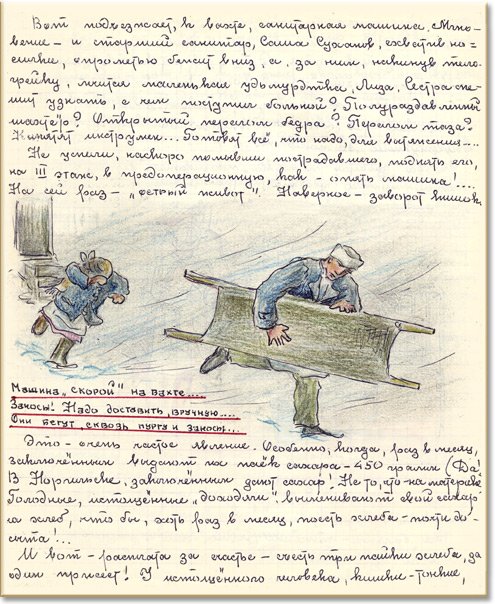 Вот подъезжает, к вахте, санитарная машина. Мгно-
вение – и старший санитар, Саша Сусанов, схватив но-
силки, опрометью бежит вниз, а, за ним, накинув тело-
грейку, мчится маленькая удмуртка, Лиза. Сестра спе-
шит узнать, с чем поступил больной? Полураздавленный
шахтёр? Открытый перелом бедра? Перелом таза?
Кипятят инструмен... Готовят всё, что надо, для вытяжения....
Не успели, наскоро помывши пострадавшего, поднять его,
на III этаж, в предоперационную, как – опять машина!....
На сей раз – „острый живот". Наверное – заворот кишок.
Машина „скорой" на вахте....
Заносы! Надо доставить, вручную....
Они бегут, сквозь пургу и заносы...
Это – очень частое явление. Особенно, когда, раз в месяц,
заключённым выдают их паёк сахара – 450 грамм (Да!
В Норильске, заключённым дают сахар! Не то, что на материке.
Голодные, истощённые „доходяги" выменивают свой сахар
на хлеб, что бы, хоть раз в месяц, поесть хлеба – почти до-
сыта!...
И вот – расплата за счастье – съесть три пайки хлеба, за
один присест! У истощённого человека, кишки – тонкие,